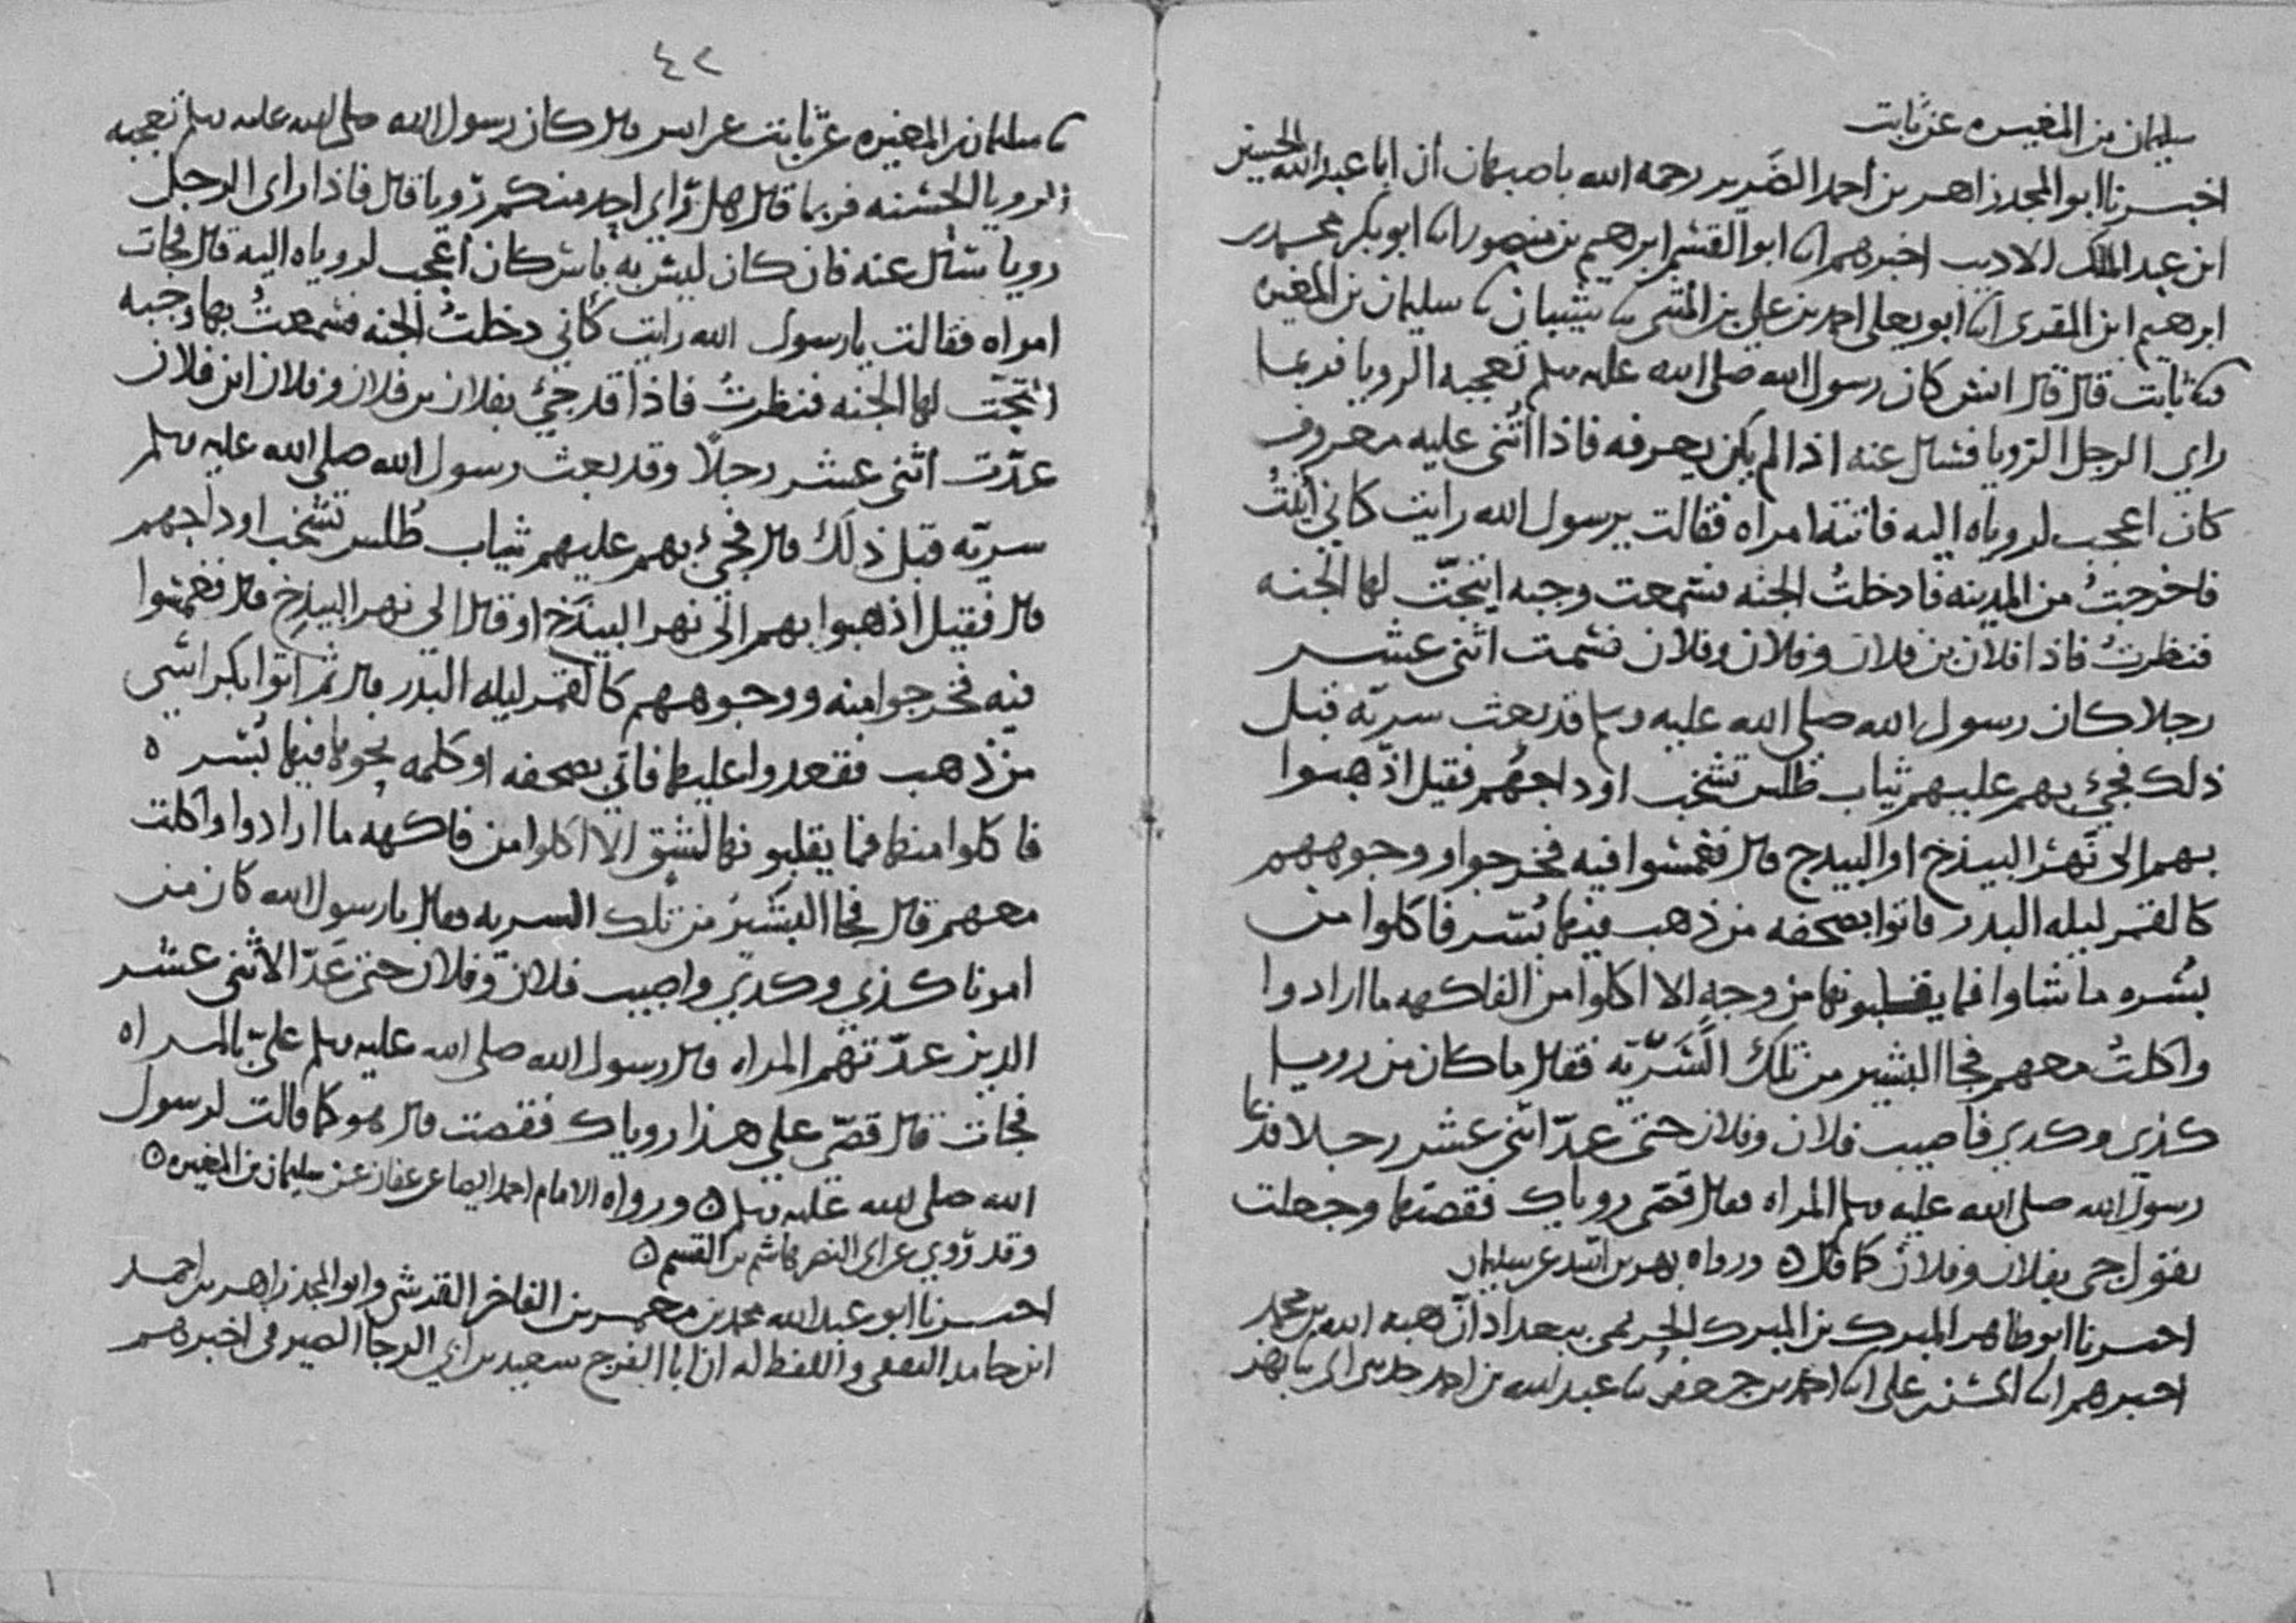 سليمان بن المغيره عن ثابت
اخبرنا ابو المجد زاهر بن أحمد الضرير رحمه الله باصبهان ان ابا عبد الله الحسين
ابن عبد الملك الاديب اخبرهم ابنا ابو القسم ابرهيم بن منصور ابنا ابو بكر محمد بن
ابرهيم ابن المقرى ابنا ابو يعلى احمد بن علي بن المثنى ثنا شيبان ثنا سليمان بن المغيره
ثنا ثابت قال قال انس كان رسول الله صلى الله عليه وسلم تعجبه الرويا فربما
راي الرجل الرويا فسال عنه اذا لم يكن يعرفه فاذا اثنى عليه معروف
كان اعجب لروياه اليه فاتته امراه فقالت يرسول الله رايت كاني اتيتُ
فاخرجتُ من المدينه فادخلتُ الجنه فسمعت وجبه انتحّت لها الجنه
فنظرتُ فاذا فلان بن فلان وفلان وفلان فسمت اثنى عشر
رجلا كان رسول الله صلى الله عليه وسلم قد بعث سريّه قبل
ذلك فجئ بهم عليهم ثياب طلس تشخب اوداجهم فقيل اذهبوا
بهم الى نهر البيذخ او البيدج قال فغمسوا فيه فخرجوا ووجوههم
كالقمر ليله البدر فاتوا بصحفه من ذهب فيها بُسر فاكلوا من
بُسره ما شاوا فما يقلبونها من وجهٍ الا اكلوا من الفاكهه ما ارادوا
واكلتُ معهم فجا البشير من تلك السَّريّه فقال ما كان من رويا
كذى وكدى فاصيب فلان وفلان حتى عدّ اثنى عشر رجلا فدعا
رسول الله صلى الله عليه وسلم المراه فقال قصّى روياك فقصتها وجعلت
يقول جى بفلان وفلان كما قال ه ورواه بهز بن اسد عن سليمان
اخبرنا ابو طاهر المبرك بن المبرك الحريمى ببغداد ان هبه الله بن محمد
اخبرهم ابنا الحسن بن على ابنا احمد بن جعفر ثنا عبد الله بن احمد حدثنى ابى ثنا بهز
٤٢
ثنا سليمان بن المغيره عن ثابت عن انس قال كان رسول الله صلى الله عليه وسلم تعجبه
الرويا الحسنه فربما قال هل رَاى احد منكم رُويا قال فاذا راى الرجل
رويا سال عنه فان كان ليس به باس كان اعجب لروياه اليه قال فجات
امراه فقالت يا رسول الله رايت كاني دخلتُ الجنه فسمعتُ بها وجبه
انتحّت لها الجنه فنظرتُ فاذا قد جئ بفلان بن فلان وفلان ابن فلان
عدّت اثنى عشر رجلًا وقد بعث رسول الله صلى الله عليه وسلم
سريّه قبل ذلك قال فجئ بهم عليهم ثياب طُلس تشخب اوداجهم
قال فقيل اذهبوا بهم الى نهر البيذخ او قال الى نهر البيدخ قال فغمسوا
فيه فخرجوا منه ووجوههم كالقمر ليله البدر قال ثم اتوا بكراسى
من ذهب فقعدوا عليها فاتي بصحفه او كلمه نحوها فيها بُسر ه
فاكلوا منها فما يقلبونها لشق الا اكلوا من فاكهه ما ارادوا واكلت
معهم قال فجا البشير من تلك السريه فقال يا رسول الله كان من
امرنا كذى وكدى واصيب فلان وفلان حتى عَدّ الاثنى عشر
الذين عدّتهم المراه قال رسول الله صلى الله عليه وسلم علىّ بالمراه
فجات قال قصّى على هذا روياك فقصت قال هو كما قالت لرسول
الله صلى الله عليه وسلم ه ورواه الامام احمد ايضا عن عفان عن سليمان بن المغيره ه
وقد رُوي عن ابى النضر هاشم بن القسم ه
اخبرنا ابو عبد الله محمد بن معمر بن الفاخر القرشى وابو المجد زاهر بن احمد
ابن حامد الثقفى واللفظ له ان ابا الفرج سعيد بن ابي الرجا الصيرفى اخبرهم